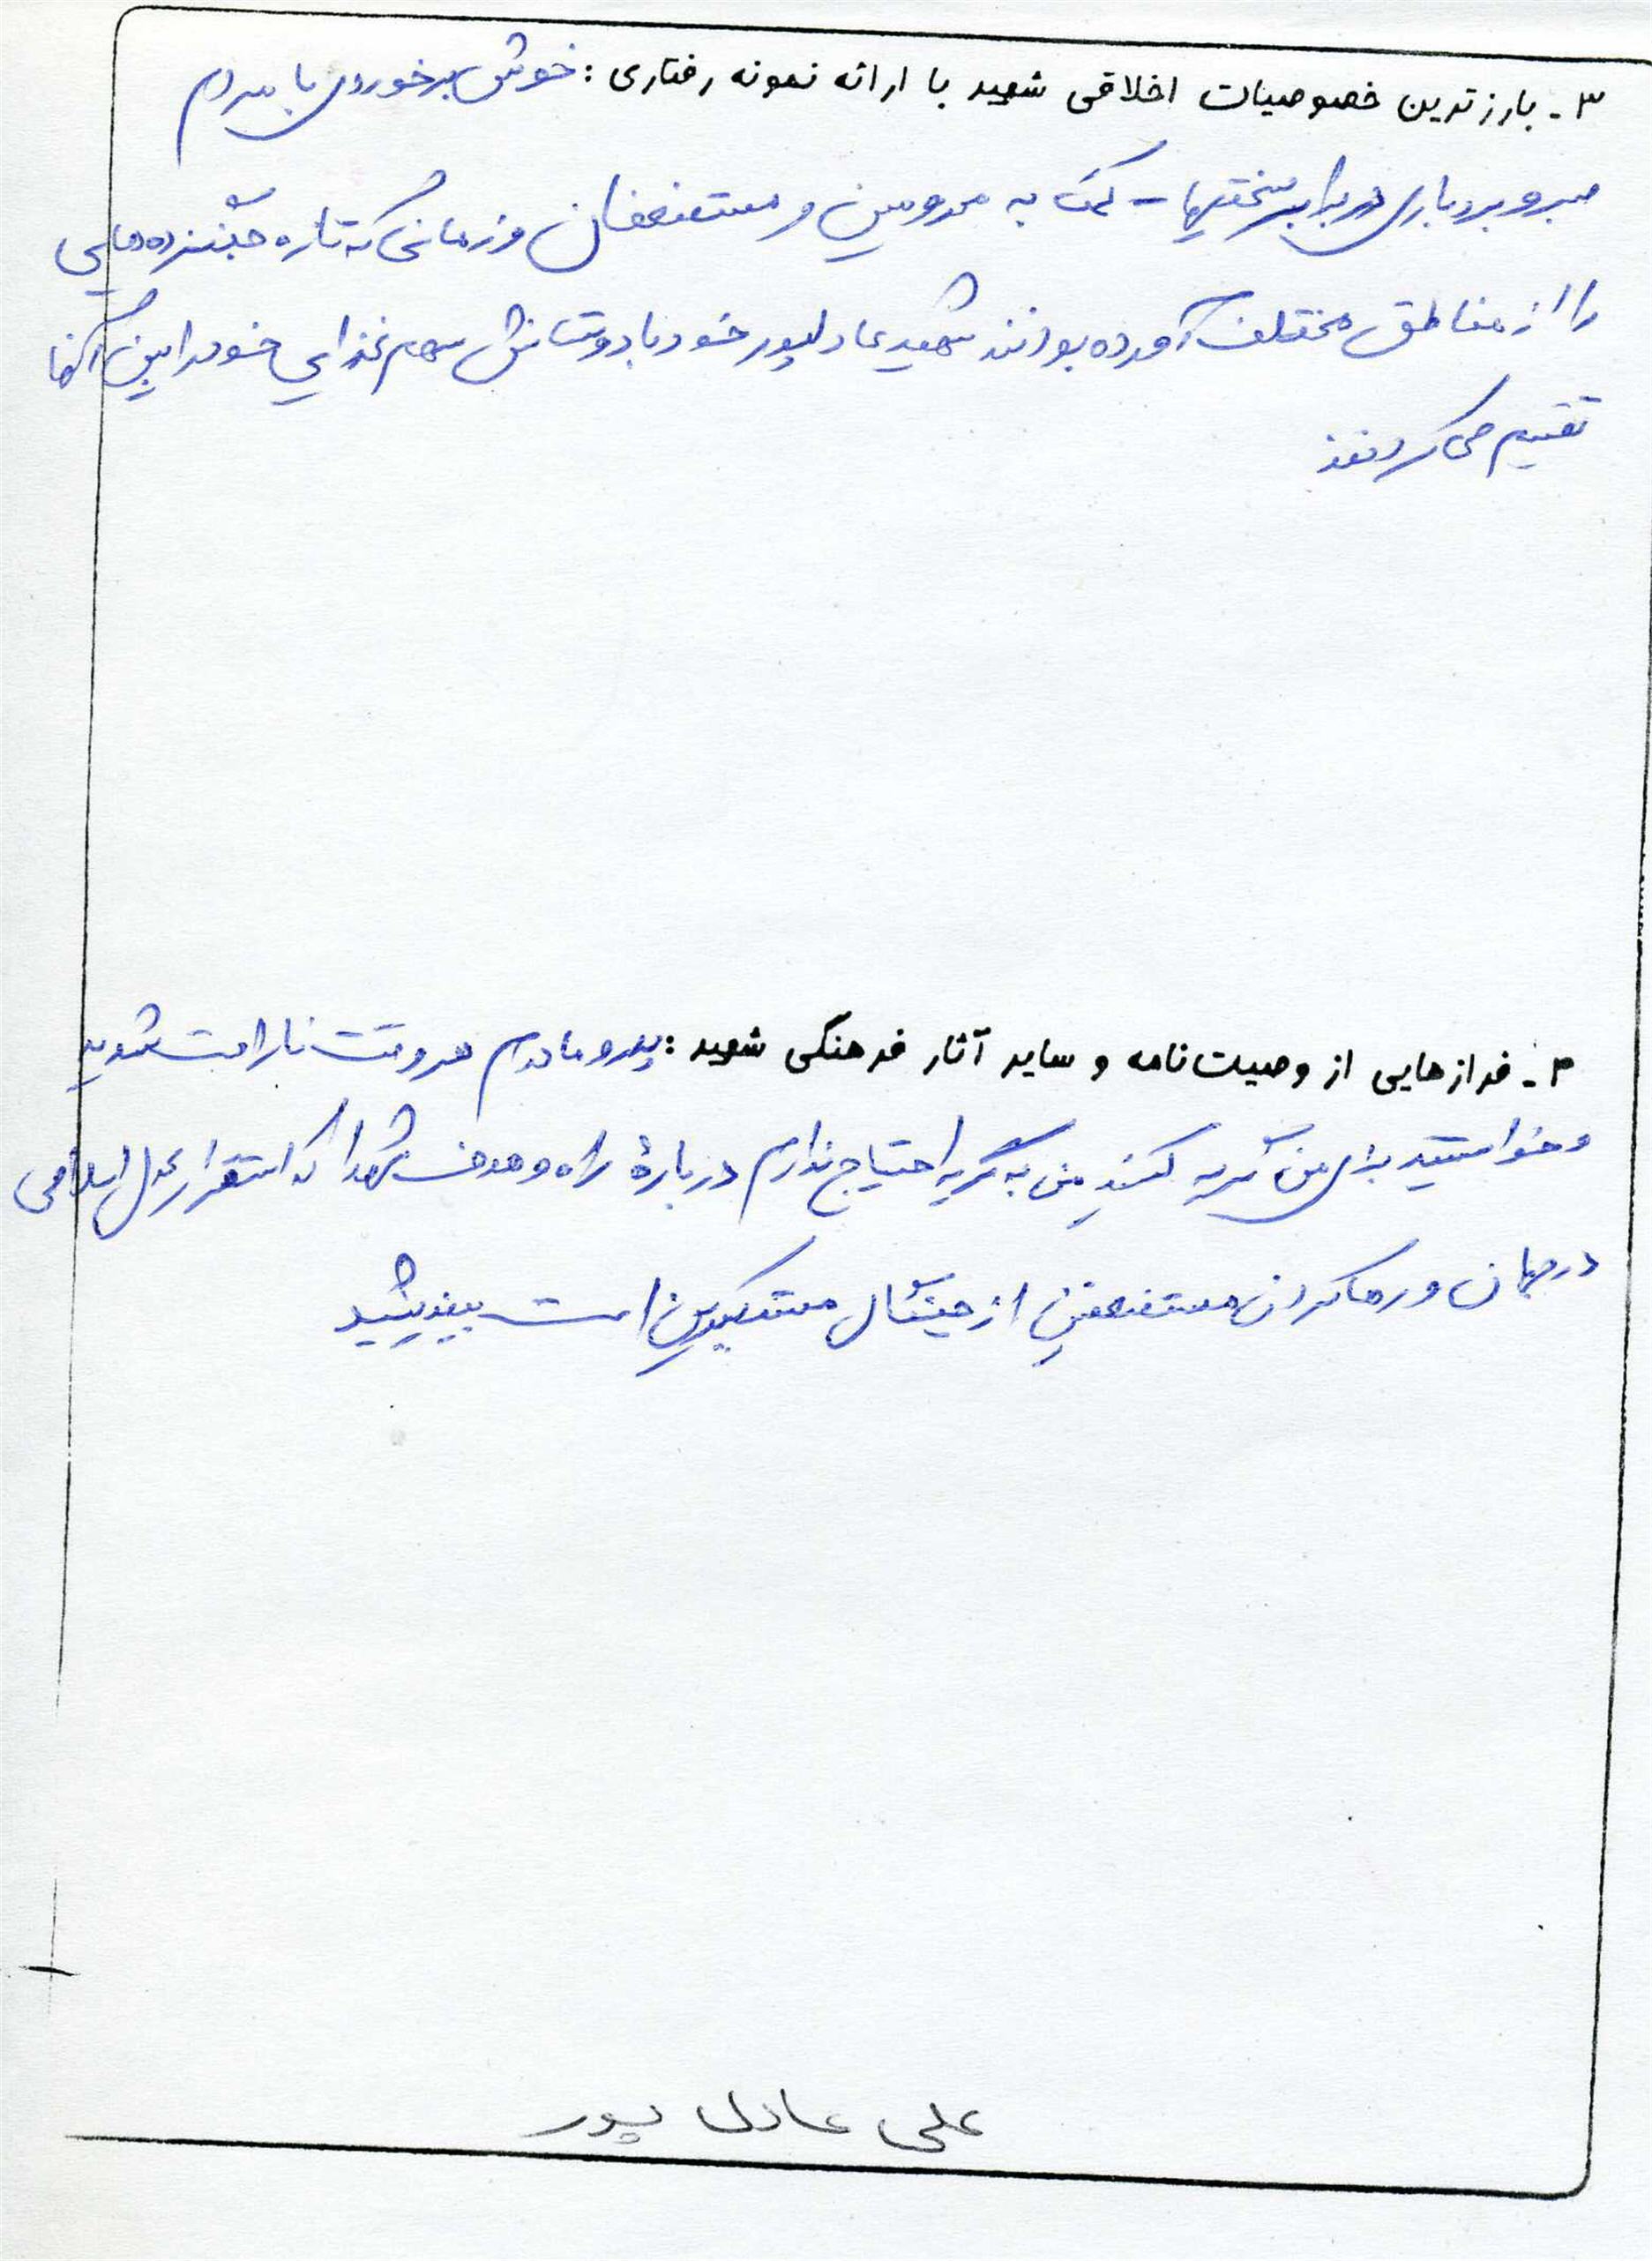 ۳- بارزترین خصوصیات اخلاقی شهید با ارائه نمونه رفتاری: خوش برخوردی با مردم
صبر و بردباری در برابر سختیها - کمک به محرومین و مستضعفان و زمانی که تازه جنگ‌زده‌هایی
را از مناطق مختلف آورده بودند شهید عادلپور خود با دوستانش سهم غذایی خود را بین آنها
تقسیم می کردند
۴- فرازهایی از وصیت‌نامه و سایر آثار فرهنگی شهید: پدر و مادرم هر وقت ناراحت شدید
و خواستید برای من گریه کنید من به گریه احتیاج ندارم دربارهٔ راه و هدف شهدا که استقرار عدل اسلامی
در جهان و رها کردن مستضعفین از چنگال مستکبرین است بیندیشید
علی عادل پور